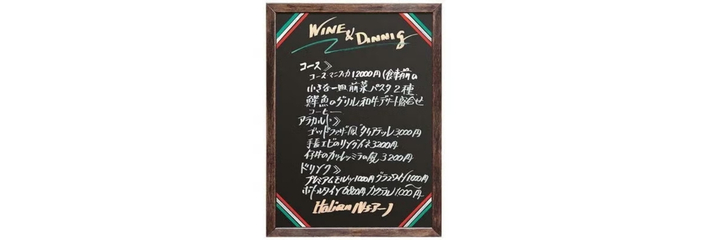 WINE & DINNIG
コース》
コースマニフィカ12000円(食事前の
小さな一皿 前菜 パスタ2種
鰹魚のグリル 和牛 デザート盛合せ
コーヒー
アラカルト》
ゴッドファーザー風 タリアテッレ 3000円
手長エビのリングイネ 3200円
仔牛のカツレツ ミラノ風 3200円
ドリンク》
プレミアムモルツ1000円 グラスワイン1000円
ボトルワイン6800円 カクテル1000円〜
Italian